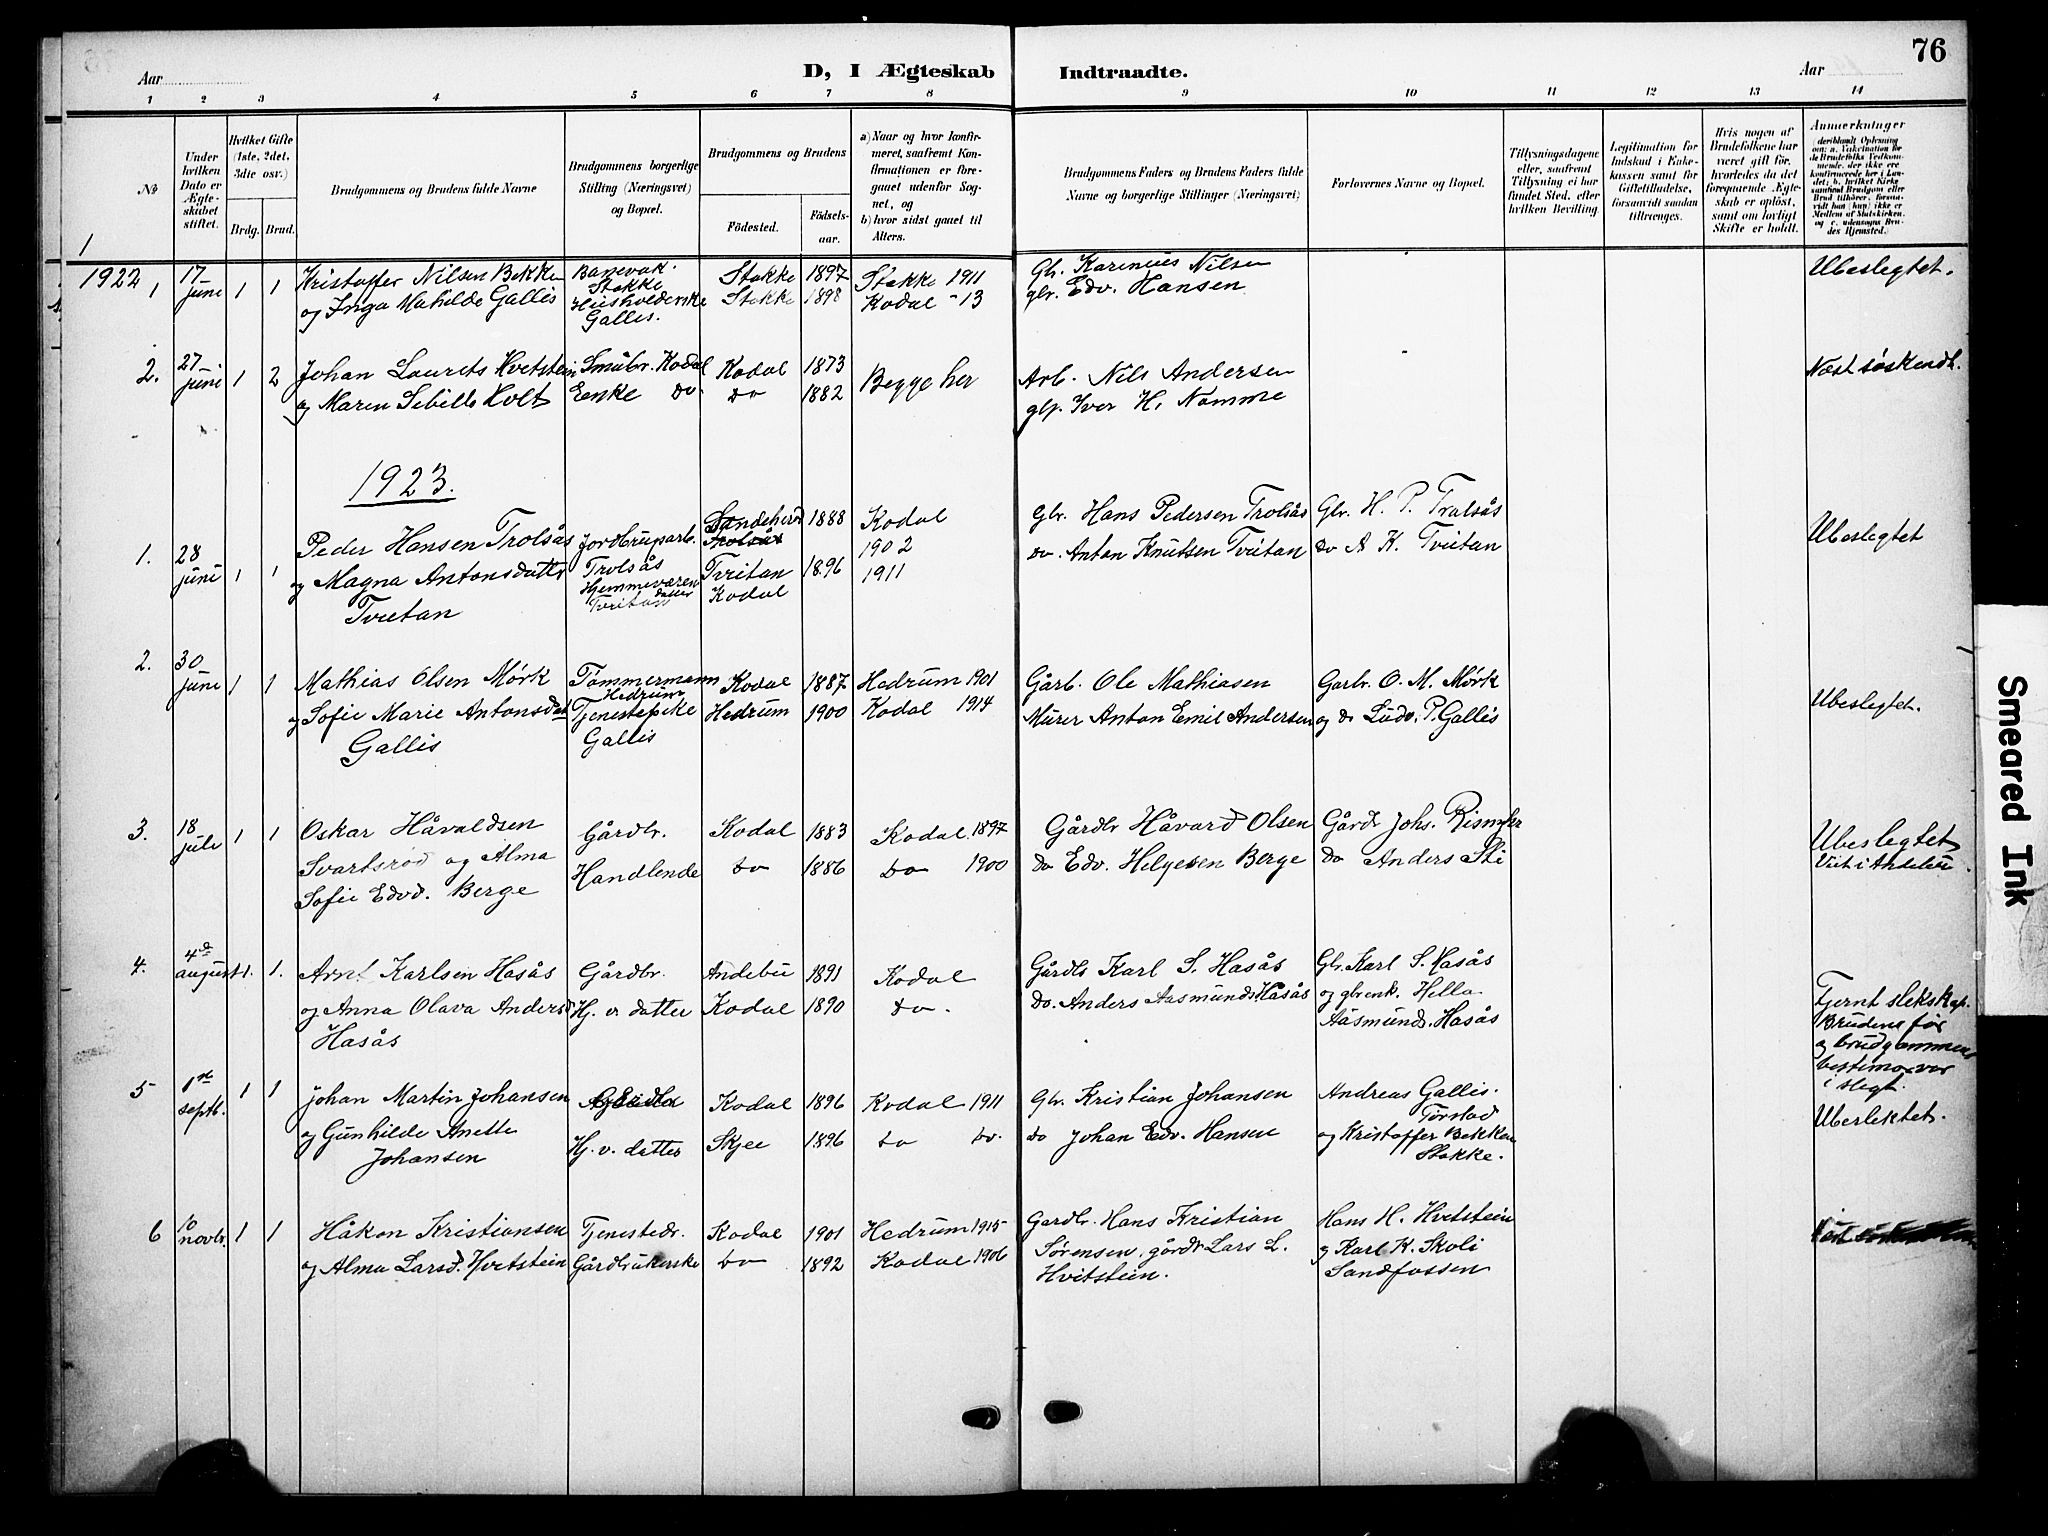 76
Aar
D, I Ægteskab Indtraadte.
Aar
1 2 3 4 5 6 7 8 9 10 11 12 13 14
No
Under hvilken Dato er Ægteskabet stiftet.
Hvilket Gifte (1ste, 2det, 3die osv.)
Brdg. Brud.
Brudgommens og Brudens fulde Navne
Brudgommens borgerlige Stilling (Næringsvei) og Bopæl.
Brudgommens og Brudens
Födested.
Födsels-aar.
a) Naar og hvor konfirmeret, saafremt Konfirmationen er foregaaet udenfor Sognet, og
b) hvor sidst gaaet til Alters.
Brudgommens Faders og Brudens Faders fulde Navne og borgerlige Stillinger (Næringsvei)
Forlovernes Navne og Bopæl.
Tillysningsdagene eller, saafremt Tillysning ei har fundet Sted, efter hvilken Bevilling.
Legitimation for Indskud i Enkekassen samt for Giftetilladelse, forsaavidt saadan tiltrenges.
Hvis nogen af Brudefolkene har været gift för, hvorledes da det foregaaende Ægteskab er oplöst, samt om lovligt Skifte er holdt.
Anmerkninger
(deriblandt Oplysning om: a. Vakcination for de Brudefolks Vedkommende, der ikke ere konfirmerede her i Landet; b. hvilket Kirkesamfund Brudgom eller Brud tilhörer, forsaavidt han (hun) ikke er Medlem af Statskirken, og c. udensogns Brudes Hjemsted.)
1
1922
1 17 juni 1 1 Kristoffer Nilsen Bekke Banevok. Stokke Stokke 1897 Stokke 1911 Gb. Karenius Nilsen Ubeslegtet.
og Inga Mathilde Gallis Husholderske Gallis. Stokke 1898 Kodal -13 glr. Edv. Hansen
2. 27 juni 1 2 Johan Laurits Hvitstein Småbr. Kodal Kodal 1873 Begge her Arb. Nils Andersen Næst søskendb.
og Maren Sibille Holt Enke do do 1882 Iver H. Nomme
1923.
1. 28 juni 1 1 Peder Hansen Trolsås Jordbruparb. Trolsås Sandeherad 1888 Kodal 1902 Gbr. Hans Pedersen Trolsås Gbr. H. P. Trolsås Ubeslegtet
og Magna Antonsdatter Tvitan Hjemmeværende datter Tvitan Tvitan Kodal 1896 1911 do. Anton Knutsen Tvitan do A K. Tvitan
2. 30 juni 1 1 Mathias Olsen Mørk Tømmermann Hedrum Kodal 1887 Hedrum 1901 Gårb. Ole Mathiasen Garbr. O. M. Mørk Ubeslegtet.
og Sofie Marie Antonsdat Gallis Tjenestepike Gallis Hedrum 1900 Kodal 1914 Murer Anton Emil Andersen og do Ludv. P. Gallis
3. 18 juli 1 1 Oskar Håvaldsen Gårdbr. Kodal 1883 Kodal 1897 Gårdbr Håvard Olsen Gårdr Johs. Ubeslegtet
Svartsrød og Alma Sofie Edvd. Berge Handlende do 1886 do 1900 do Edv. Helgesen Berge do Anders Sti Viet i Andebu.
4. 4de august 1. 1. Arnt Karlsen Hasås Gårdbr. Andebu 1891 Kodal Gårdb Karl S. Hasås Gbr. Karl S. Hasås Fjernt slekskap.
og Anna Olava Andersd Hasås Hj. v datter Kodal 1890 do. Do. Anders Aasmunds Hasås og gbrenk. Hella Aasmunds. Hasås Brudens før og brudgommens bestimover i slegt.
5 1st septb. 1 1 Johan Martin Johansen Kodal 1896 Kodal 1911 Gbr. Kristian Johansen Andreas Gallis. Torstad Uberlektet.
og Gunhilde Anette Johansen Hj. v. datter Skjee 1896 do do. do Johan Edv. Hansen og Kristoffer Bekken Stokke.
6 10 novbr. 1 1 Håkon Kristiansen Tjenestedr. Kodal 1901 Hedrum 1915 Gardbr. Hans Kristian Sørensen, Hans H. Hvitstein
og Alma Larsd. Hvitstein Gårdbrukerske do 1892 Kodal 1906 gårdbr Lars L. Hvitstein. og Karl K. Skoli Sandfossen
Smeared Ink